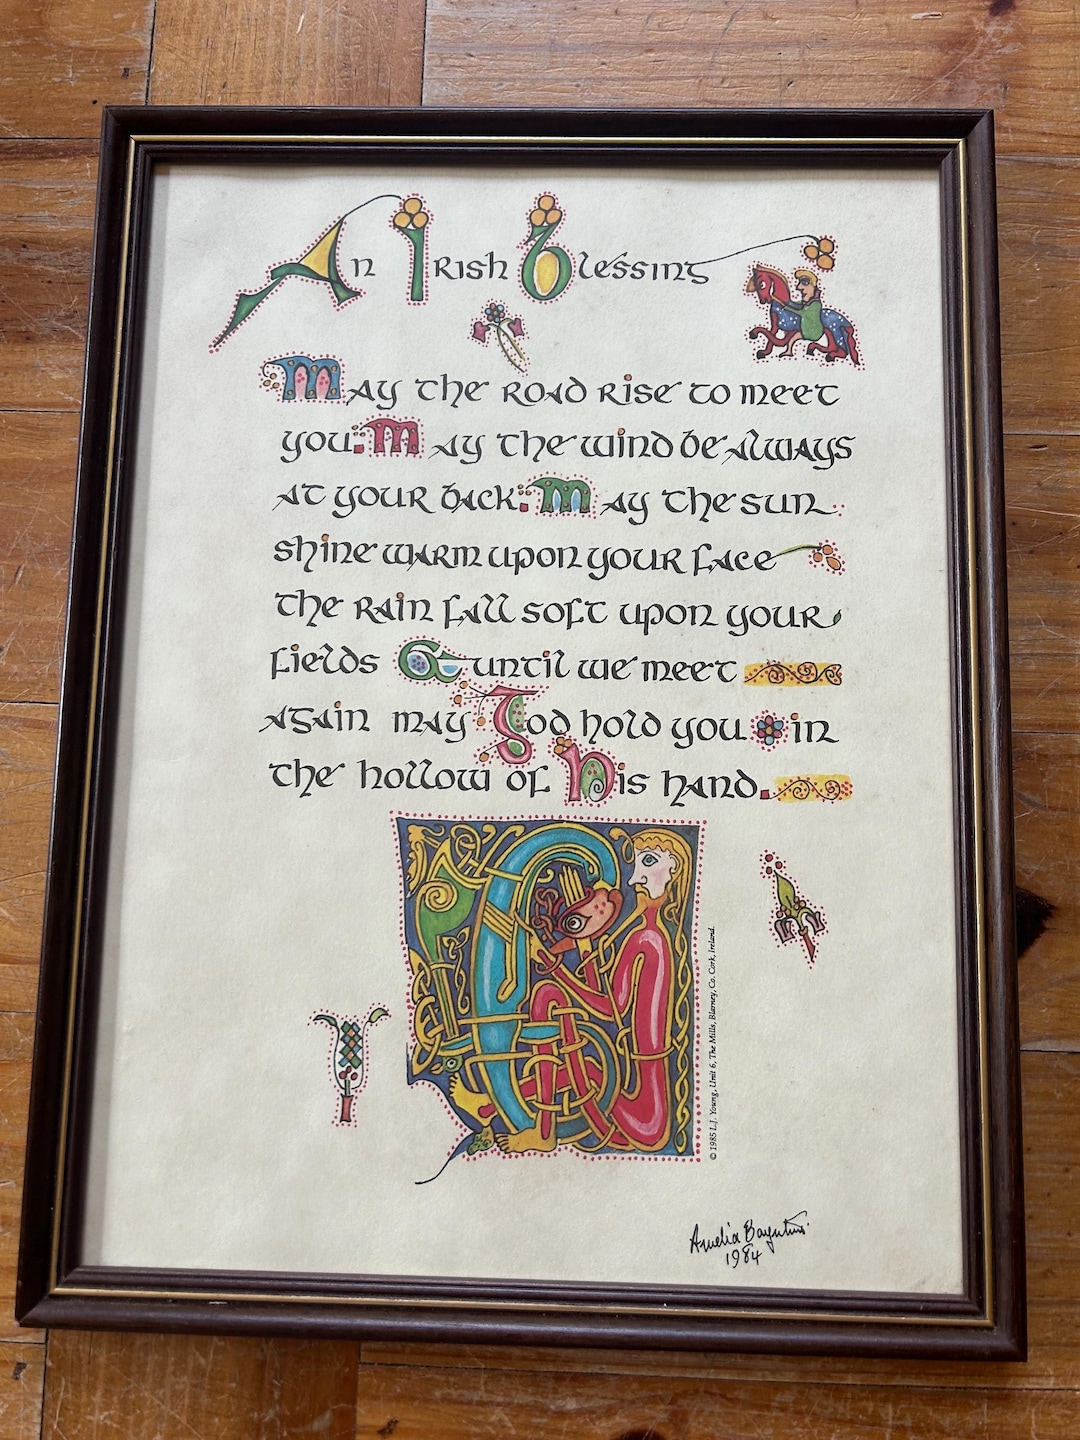 An Irish Blessing
May the road rise to meet
you. May the wind be always
at your back. May the sun
shine warm upon your face
the rain fall soft upon your
fields & until we meet
again may God hold you in
the hollow of His hand.
© 1985 L.J. Young, Unit 6, The Mills, Blarney, Co. Cork, Ireland.
Amelia Bayntun
1984